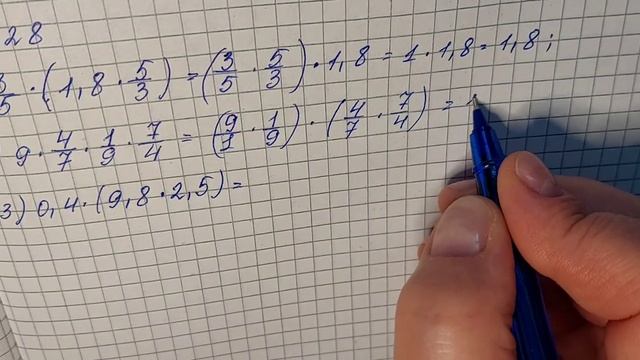 28
3/5 · (1,8 · 5/3) = (3/5 · 5/3) · 1,8 = 1 · 1,8 = 1,8;
9 · 4/7 · 1/9 · 7/4 = (9/1 · 1/9) · (4/7 · 7/4) =
3) 0,4 · (9,8 · 2,5) =